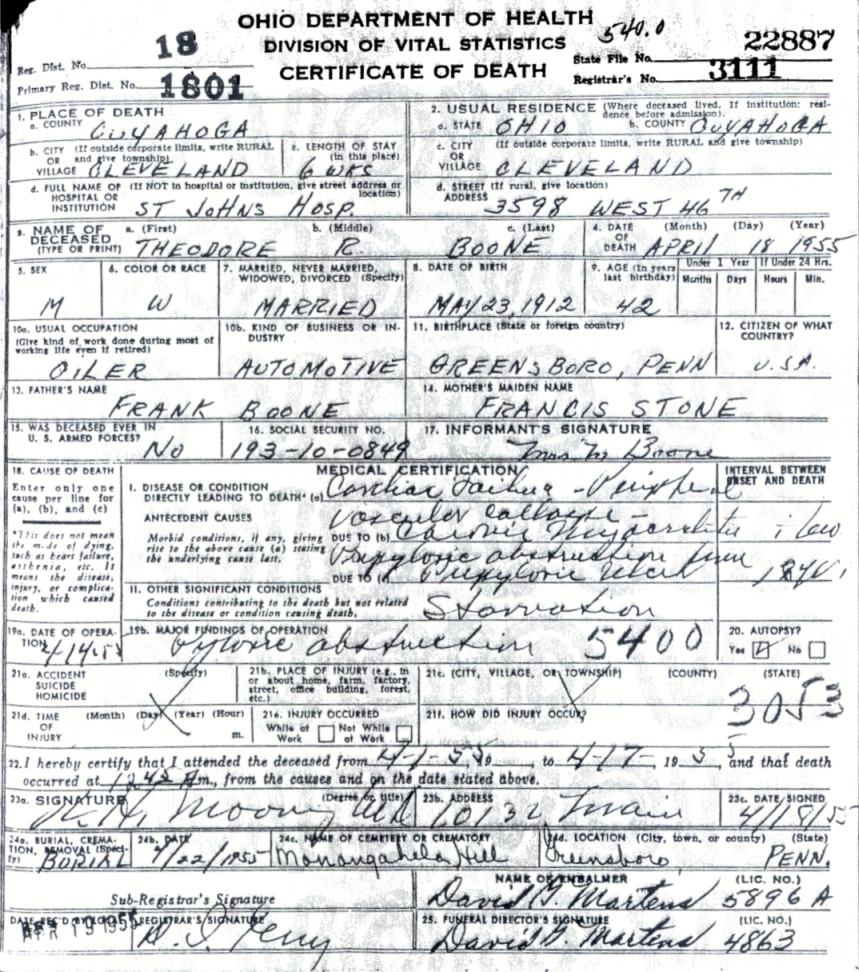 OHIO DEPARTMENT OF HEALTH
DIVISION OF VITAL STATISTICS
CERTIFICATE OF DEATH
Reg. Dist. No. 18
Primary Reg. Dist. No. 1801
540.0
State File No. 22887
Registrar's No. 3111
1. PLACE OF DEATH
a. COUNTY CUYAHOGA
2. USUAL RESIDENCE (Where deceased lived. If institution: residence before admission).
a. STATE OHIO b. COUNTY CUYAHOGA
b. CITY (If outside corporate limits, write RURAL
OR and give township)
VILLAGE CLEVELAND
c. LENGTH OF STAY
(in this place)
6 WKS
c. CITY (If outside corporate limits, write RURAL and give township)
OR
VILLAGE CLEVELAND
d. FULL NAME OF (If NOT in hospital or institution, give street address or location)
HOSPITAL OR
INSTITUTION ST JOHNS HOSP.
d. STREET (If rural, give location)
ADDRESS 3598 WEST 46TH
3. NAME OF DECEASED (TYPE OR PRINT)
a. (First) b. (Middle) c. (Last)
THEODORE R. BOONE
4. DATE OF DEATH (Month) (Day) (Year)
APRIL 18 1955
5. SEX
M
6. COLOR OR RACE
W
7. MARRIED, NEVER MARRIED,
WIDOWED, DIVORCED (Specify)
MARRIED
8. DATE OF BIRTH
MAY 23, 1912
9. AGE (In years last birthday)
42
Under 1 Year
Months Days
If Under 24 Hrs.
Hours Min.
10a. USUAL OCCUPATION
(Give kind of work done during most of
working life even if retired)
OILER
10b. KIND OF BUSINESS OR INDUSTRY
AUTOMOTIVE
11. BIRTHPLACE (State or foreign country)
GREENSBORO, PENN
12. CITIZEN OF WHAT COUNTRY?
U.S.A.
13. FATHER'S NAME
FRANK BOONE
14. MOTHER'S MAIDEN NAME
FRANCIS STONE
15. WAS DECEASED EVER IN
U. S. ARMED FORCES?
No
16. SOCIAL SECURITY NO.
193-10-0849
17. INFORMANT'S SIGNATURE
Mrs M Boone
18. CAUSE OF DEATH
Enter only one
cause per line for
(a), (b), and (c)
*This does not mean
the mode of dying,
such as heart failure,
asthenia, etc. It
means the disease,
injury, or complication
which caused
death.
MEDICAL CERTIFICATION
INTERVAL BETWEEN
ONSET AND DEATH
I. DISEASE OR CONDITION
DIRECTLY LEADING TO DEATH* (a) Cardiac Failure
ANTECEDENT CAUSES vascular collapse
Morbid conditions, if any, giving
rise to the above cause (a) stating
the underlying cause last.
DUE TO (b) Chronic
obstruction
DUE TO (c) Prepyloric
II. OTHER SIGNIFICANT CONDITIONS
Conditions contributing to the death but not related
to the disease or condition causing death.
Starvation
19a. DATE OF OPERATION
4/14/55
19b. MAJOR FINDINGS OF OPERATION
pyloric obstruction 5400
20. AUTOPSY?
Yes No
21a. ACCIDENT (Specify)
SUICIDE
HOMICIDE
21b. PLACE OF INJURY (e.g., in
or about home, farm, factory,
street, office building, forest,
etc.)
21c. (CITY, VILLAGE, OR TOWNSHIP) (COUNTY) (STATE)
3053
21d. TIME OF INJURY (Month) (Day) (Year) (Hour)
m.
21e. INJURY OCCURRED
While at Work Not While at Work
21f. HOW DID INJURY OCCUR?
22. I hereby certify that I attended the deceased from 4-1-55, to 4-17-, 1955, and that death
occurred at m., from the causes and on the date stated above.
23a. SIGNATURE (Degree or title)
Mooney MD
23b. ADDRESS
23c. DATE SIGNED
4/18/55
24a. BURIAL, CREMATION, REMOVAL (Specify)
BURIAL
24b. DATE
4/22/1955
24c. NAME OF CEMETERY OR CREMATORY
Monongahela Hill
24d. LOCATION (City, town, or county) (State)
Greensboro, PENN.
Sub-Registrar's Signature
NAME OF EMBALMER (LIC. NO.)
David G. Martens 5896 A
DATE REC'D BY LOCAL REG.
APR 19 1955
REGISTRAR'S SIGNATURE
25. FUNERAL DIRECTOR'S SIGNATURE (LIC. NO.)
David G. Martens 4863